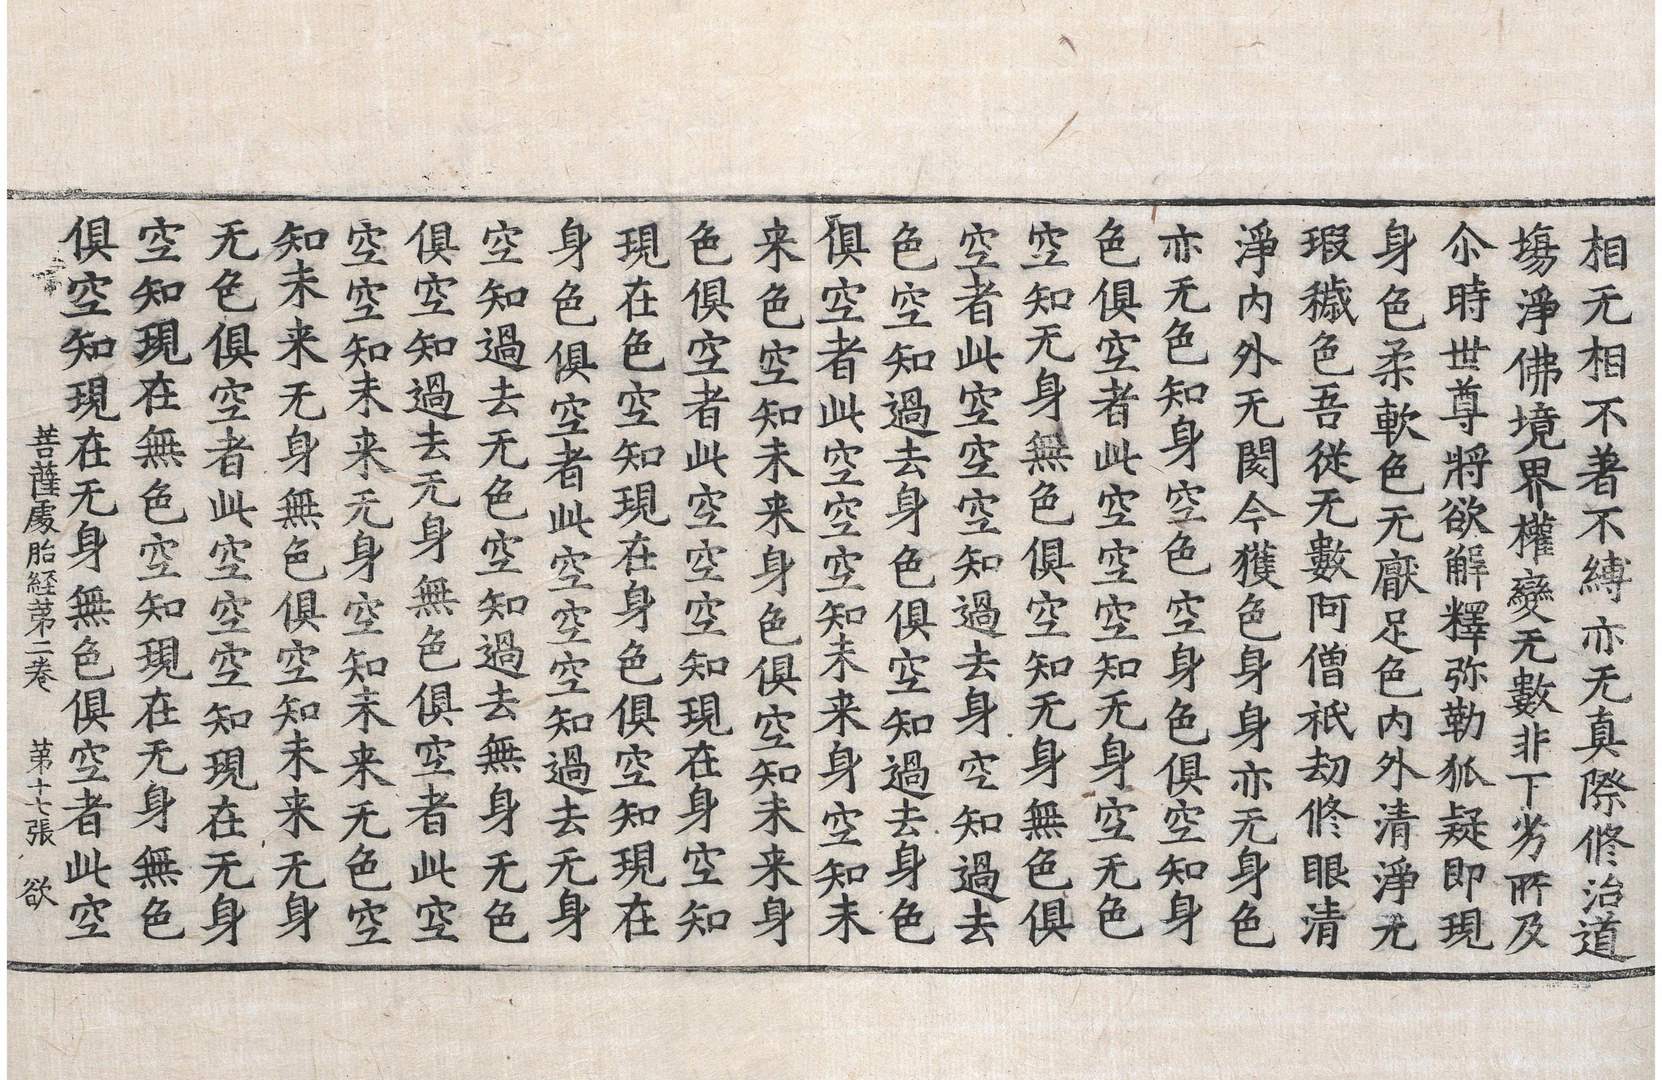 相无相不著不縛亦无真際修治道
場淨佛境界權變无數非下劣所及
尒時世尊將欲解釋弥勒狐疑即現
身色柔軟色无厭足色内外清淨无
瑕穢色吾從无數阿僧祇劫修眼清
淨内外无閡今獲色身身亦无身色
亦无色知身空色空身色俱空知身
色俱空者此空空空知无身空无色
空知无身無色俱空知无身無色俱
空者此空空空知過去身空知過去
色空知過去身色俱空知過去身色
俱空者此空空空知未来身空知未
来色空知未来身色俱空知未来身
色俱空者此空空空知現在身空知
現在色空知現在身色俱空知現在
身色俱空者此空空空知過去无身
空知過去无色空知過去無身无色
俱空知過去无身無色俱空者此空
空空知未来无身空知未来无色空
知未来无身無色俱空知未来无身
无色俱空者此空空空知現在无身
空知現在無色空知現在无身無色
俱空知現在无身無色俱空者此空
菩薩處胎経苐二卷 苐十七張 欲